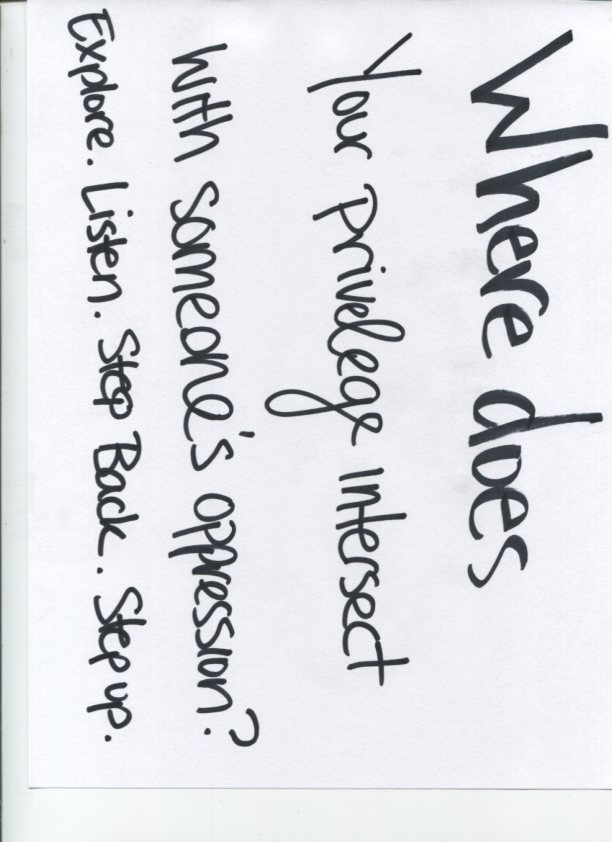 Where does
Your privelege intersect
With someone's oppression?
Explore. Listen. Step Back. Step up.